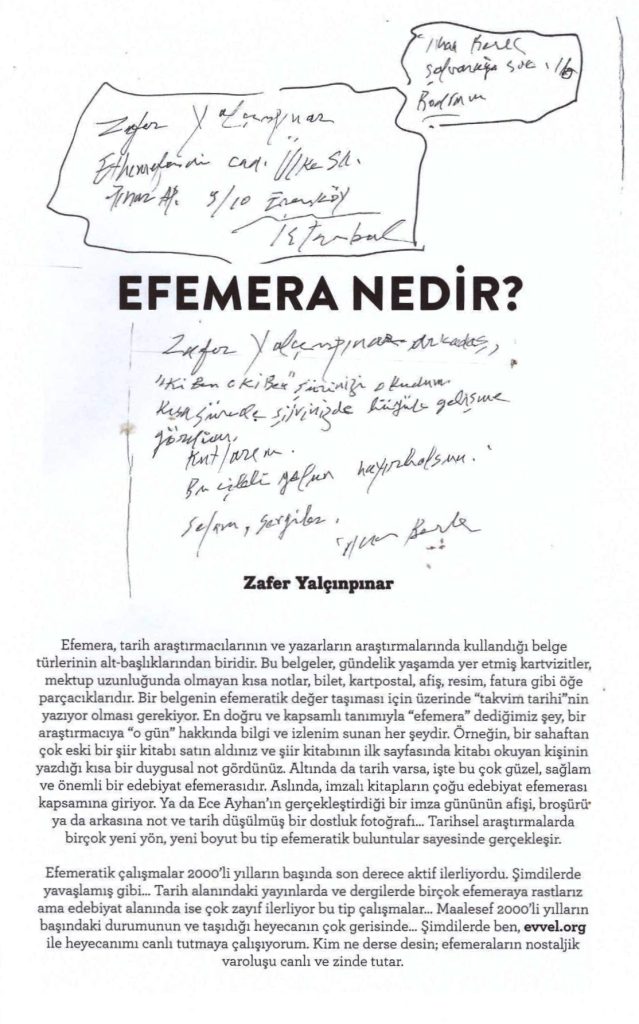 İlhan Berk
Şalvarağa sok.
Bodrum
Zafer Yalçınpınar
Ethemefendi cad. Ülke Sk.
Pınar Ap. 5/10 Erenköy
İstanbul
EFEMERA NEDİR?
Zafer Yalçınpınar arkadaş,
şiirinizi okudum.
Kısa sürede şiirinizde büyük gelişme
gördüm.
Kutlarım.
Bu
Selam, sevgiler.
İlhan Berk
Zafer Yalçınpınar
Efemera, tarih araştırmacılarının ve yazarların araştırmalarında kullandığı belge
türlerinin alt-başlıklarından biridir. Bu belgeler, gündelik yaşamda yer etmiş kartvizitler,
mektup uzunluğunda olmayan kısa notlar, bilet, kartpostal, afiş, resim, fatura gibi öğe
parçacıklarıdır. Bir belgenin efemeratik değer taşıması için üzerinde “takvim tarihi”nin
yazıyor olması gerekiyor. En doğru ve kapsamlı tanımıyla “efemera” dediğimiz şey, bir
araştırmacıya “o gün” hakkında bilgi ve izlenim sunan her şeydir. Örneğin, bir sahaftan
çok eski bir şiir kitabı satın aldınız ve şiir kitabının ilk sayfasında kitabı okuyan kişinin
yazdığı kısa bir duygusal not gördünüz. Altında da tarih varsa, işte bu çok güzel, sağlam
ve önemli bir edebiyat efemerasıdır. Aslında, imzalı kitapların çoğu edebiyat efemerası
kapsamına giriyor. Ya da Ece Ayhan’ın gerçekleştirdiği bir imza gününün afişi, broşürü
ya da arkasına not ve tarih düşülmüş bir dostluk fotoğrafı... Tarihsel araştırmalarda
birçok yeni yön, yeni boyut bu tip efemeratik buluntular sayesinde gerçekleşir.
Efemeratik çalışmalar 2000’li yılların başında son derece aktif ilerliyordu. Şimdilerde
yavaşlamış gibi... Tarih alanındaki yayınlarda ve dergilerde birçok efemeraya rastlarız
ama edebiyat alanında ise çok zayıf ilerliyor bu tip çalışmalar... Maalesef 2000’li yılların
başındaki durumunun ve taşıdığı heyecanın çok gerisinde... Şimdilerde ben, evvel.org
ile heyecanımı canlı tutmaya çalışıyorum. Kim ne derse desin; efemeraların nostaljik
varoluşu canlı ve zinde tutar.